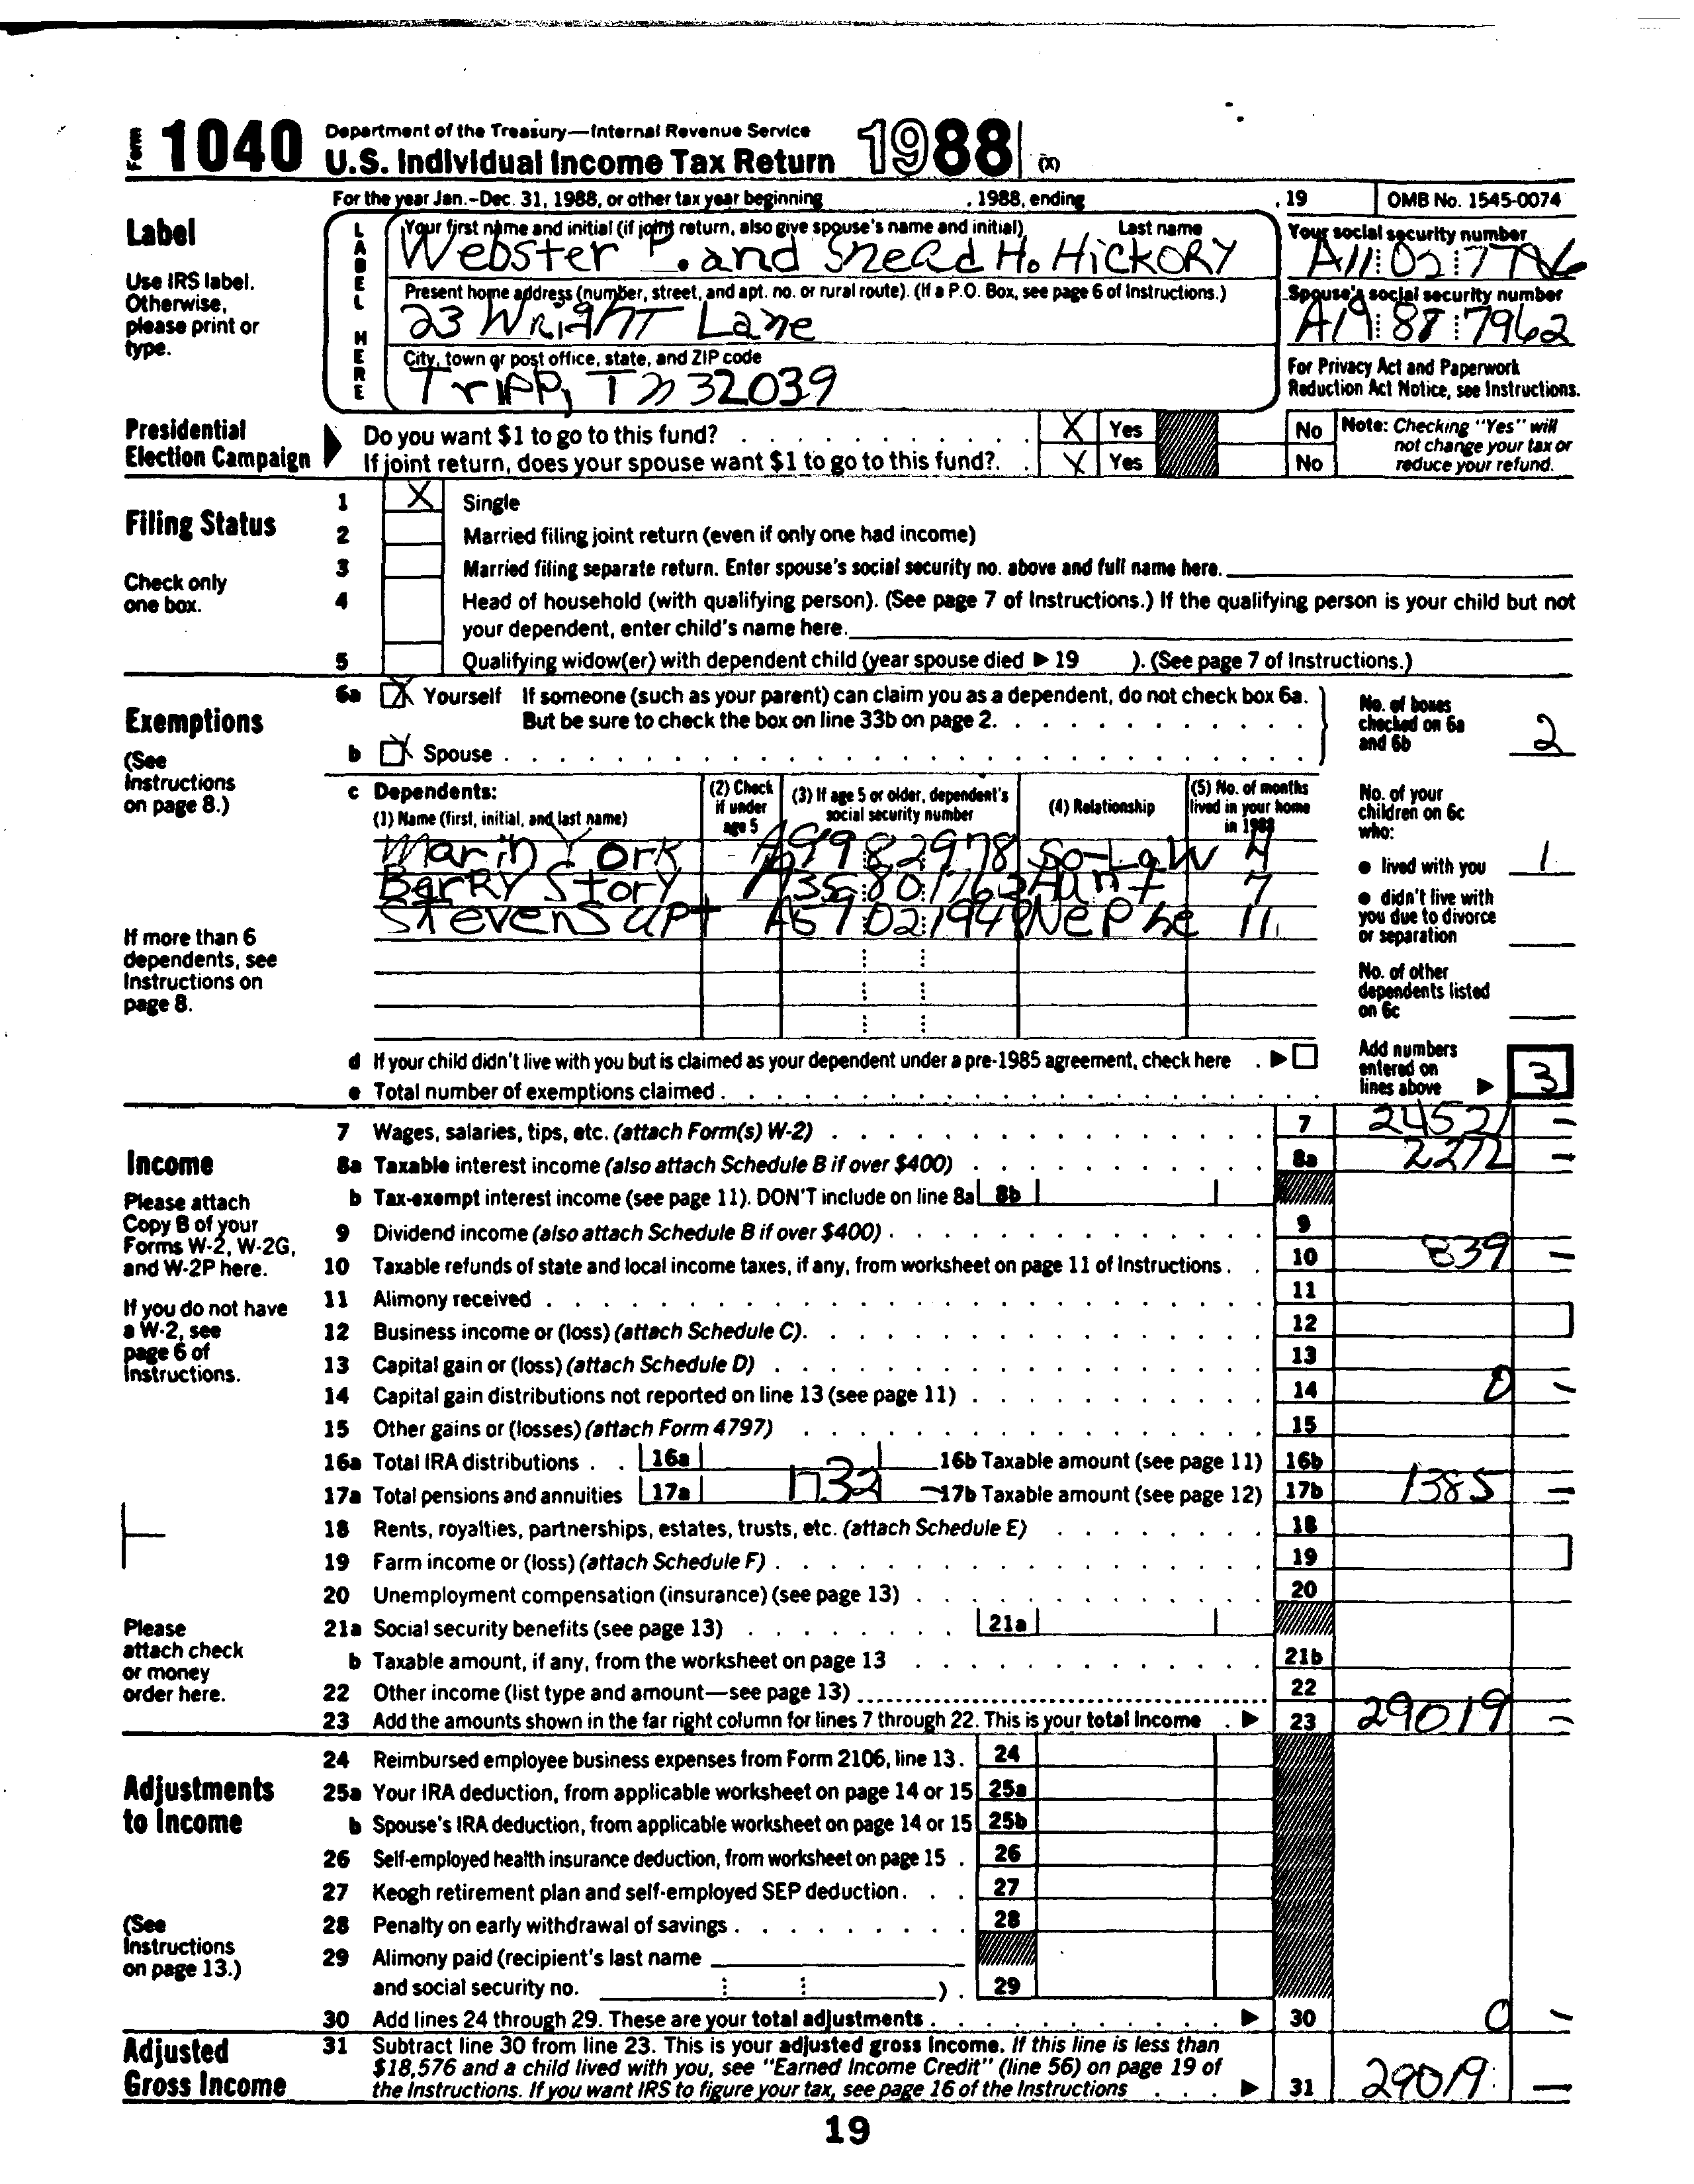 Form 1040 Department of the Treasury—Internal Revenue Service
U.S. Individual Income Tax Return 1988 (X)
For the year Jan.-Dec. 31, 1988, or other tax year beginning , 1988, ending , 19 OMB No. 1545-0074
Label
Use IRS label. Otherwise, please print or type.
LABEL HERE
Your first name and initial (if joint return, also give spouse's name and initial) Last name
Webster P. and Snead H. HICKORY
Your social security number
Present home address (number, street, and apt. no. or rural route). (If a P.O. Box, see page 6 of Instructions.)
23 Wright Lane
Spouse's social security number
A19 88 7962
City, town or post office, state, and ZIP code
Tripp, TN 32039
For Privacy Act and Paperwork Reduction Act Notice, see Instructions.
Presidential Election Campaign
Do you want $1 to go to this fund? X Yes No
If joint return, does your spouse want $1 to go to this fund?. X Yes No
Note: Checking "Yes" will not change your tax or reduce your refund.
Filing Status
Check only one box.
1 X Single
2 Married filing joint return (even if only one had income)
3 Married filing separate return. Enter spouse's social security no. above and full name here.
4 Head of household (with qualifying person). (See page 7 of Instructions.) If the qualifying person is your child but not
your dependent, enter child's name here.
5 Qualifying widow(er) with dependent child (year spouse died ▶ 19 ). (See page 7 of Instructions.)
Exemptions
(See Instructions on page 8.)
6a X Yourself If someone (such as your parent) can claim you as a dependent, do not check box 6a.
But be sure to check the box on line 33b on page 2.
b X Spouse
No. of boxes checked on 6a and 6b 2
c Dependents:
(1) Name (first, initial, and last name)
(2) Check if under age 5
(3) If age 5 or older, dependent's social security number
(4) Relationship
(5) No. of months lived in your home in 1988
Marin York A99 82 2978 So-Law 4
Barry Story A35 80 1763 Aunt 7
Steven Supt A57 02 1948 Nephe 11
No. of your children on 6c who:
● lived with you 1
● didn't live with you due to divorce or separation
No. of other dependents listed on 6c
If more than 6 dependents, see Instructions on page 8.
d If your child didn't live with you but is claimed as your dependent under a pre-1985 agreement, check here . ▶
e Total number of exemptions claimed
Add numbers entered on lines above ▶ 3
Income
Please attach Copy B of your Forms W-2, W-2G, and W-2P here.
If you do not have a W-2, see page 6 of Instructions.
Please attach check or money order here.
7 Wages, salaries, tips, etc. (attach Form(s) W-2) 7 24521 –
8a Taxable interest income (also attach Schedule B if over $400) 8a 2272 –
b Tax-exempt interest income (see page 11). DON'T include on line 8a 8b
9 Dividend income (also attach Schedule B if over $400) 9
10 Taxable refunds of state and local income taxes, if any, from worksheet on page 11 of Instructions 10 839 –
11 Alimony received 11
12 Business income or (loss) (attach Schedule C). 12
13 Capital gain or (loss) (attach Schedule D) 13
14 Capital gain distributions not reported on line 13 (see page 11) 14 0 –
15 Other gains or (losses) (attach Form 4797) 15
16a Total IRA distributions 16a 16b Taxable amount (see page 11) 16b
17a Total pensions and annuities 17a 1732 – 17b Taxable amount (see page 12) 17b 1385 –
18 Rents, royalties, partnerships, estates, trusts, etc. (attach Schedule E) 18
19 Farm income or (loss) (attach Schedule F) 19
20 Unemployment compensation (insurance) (see page 13) 20
21a Social security benefits (see page 13) 21a
b Taxable amount, if any, from the worksheet on page 13 21b
22 Other income (list type and amount—see page 13) 22
23 Add the amounts shown in the far right column for lines 7 through 22. This is your total income . ▶ 23 29019 –
Adjustments to Income
(See Instructions on page 13.)
24 Reimbursed employee business expenses from Form 2106, line 13. 24
25a Your IRA deduction, from applicable worksheet on page 14 or 15 25a
b Spouse's IRA deduction, from applicable worksheet on page 14 or 15 25b
26 Self-employed health insurance deduction, from worksheet on page 15 . 26
27 Keogh retirement plan and self-employed SEP deduction. 27
28 Penalty on early withdrawal of savings 28
29 Alimony paid (recipient's last name
and social security no. ) . 29
30 Add lines 24 through 29. These are your total adjustments ▶ 30 0 –
Adjusted Gross Income
31 Subtract line 30 from line 23. This is your adjusted gross income. If this line is less than
$18,576 and a child lived with you, see "Earned Income Credit" (line 56) on page 19 of
the Instructions. If you want IRS to figure your tax, see page 16 of the Instructions ▶ 31 29019 –
19